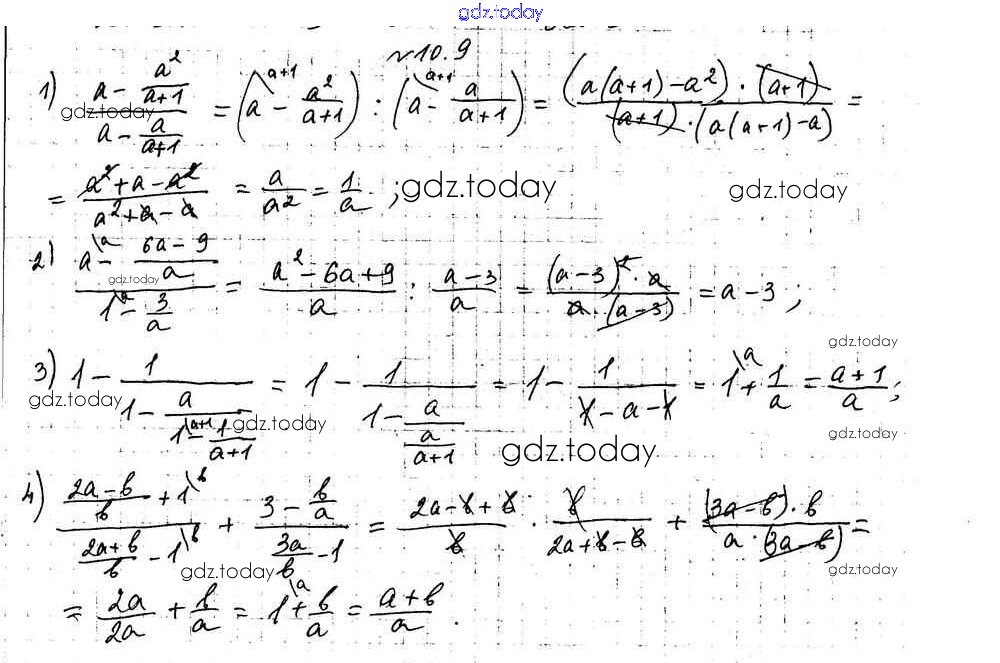 gdz.today
№10.9
1) (a - a²/(a+1)) / (a - a/(a+1)) = (a\a+1 - a²/(a+1)) : (a\a+1 - a/(a+1)) = ((a(a+1) - a²) · (a+1)) / ((a+1) · (a(a+1) - a)) =
gdz.today
= (a² + a - a²) / (a² + a - a) = a/a² = 1/a ; gdz.today gdz.today
2) (a\a - (6a - 9)/a) / (1\a - 3/a) = (a² - 6a + 9)/a : (a - 3)/a = ((a - 3)² · a) / (a · (a - 3)) = a - 3 ;
gdz.today
gdz.today
3) 1 - 1/(1 - a/(1\a+1 - 1/(a+1))) = 1 - 1/(1 - a/(a/(a+1))) = 1 - 1/(1 - a - 1) = 1\a + 1/a = (a + 1)/a ;
gdz.today gdz.today gdz.today
gdz.today
4) ((2a - b)/b + 1\b) / ((2a + b)/b - 1\b) + (3 - b/a) / (3a/b - 1) = (2a - b + b)/b · b/(2a + b - b) + ((3a - b) · b) / (a · (3a - b)) =
gdz.today gdz.today
= 2a/2a + b/a = 1\a + b/a = (a + b)/a .
gdz.today